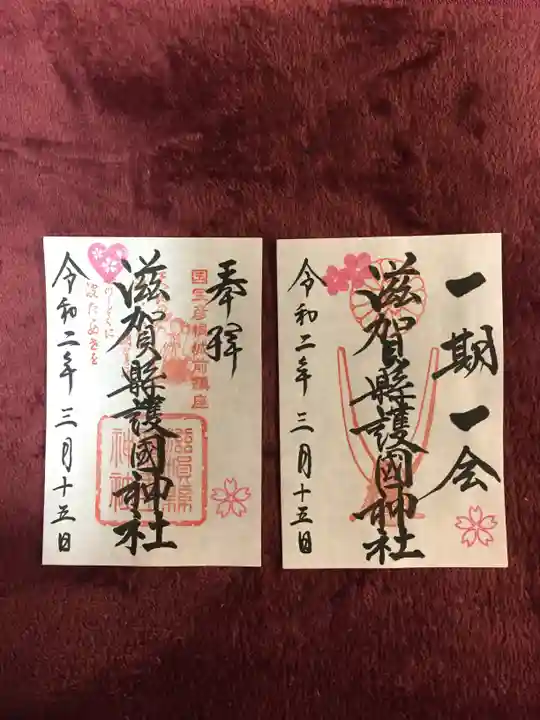 奉拝
国宝彦根城前鎮座
滋賀縣護國神社
滋賀縣
神社
令和二年三月十五日
一期一会
滋賀縣護國神社
令和二年三月十五日